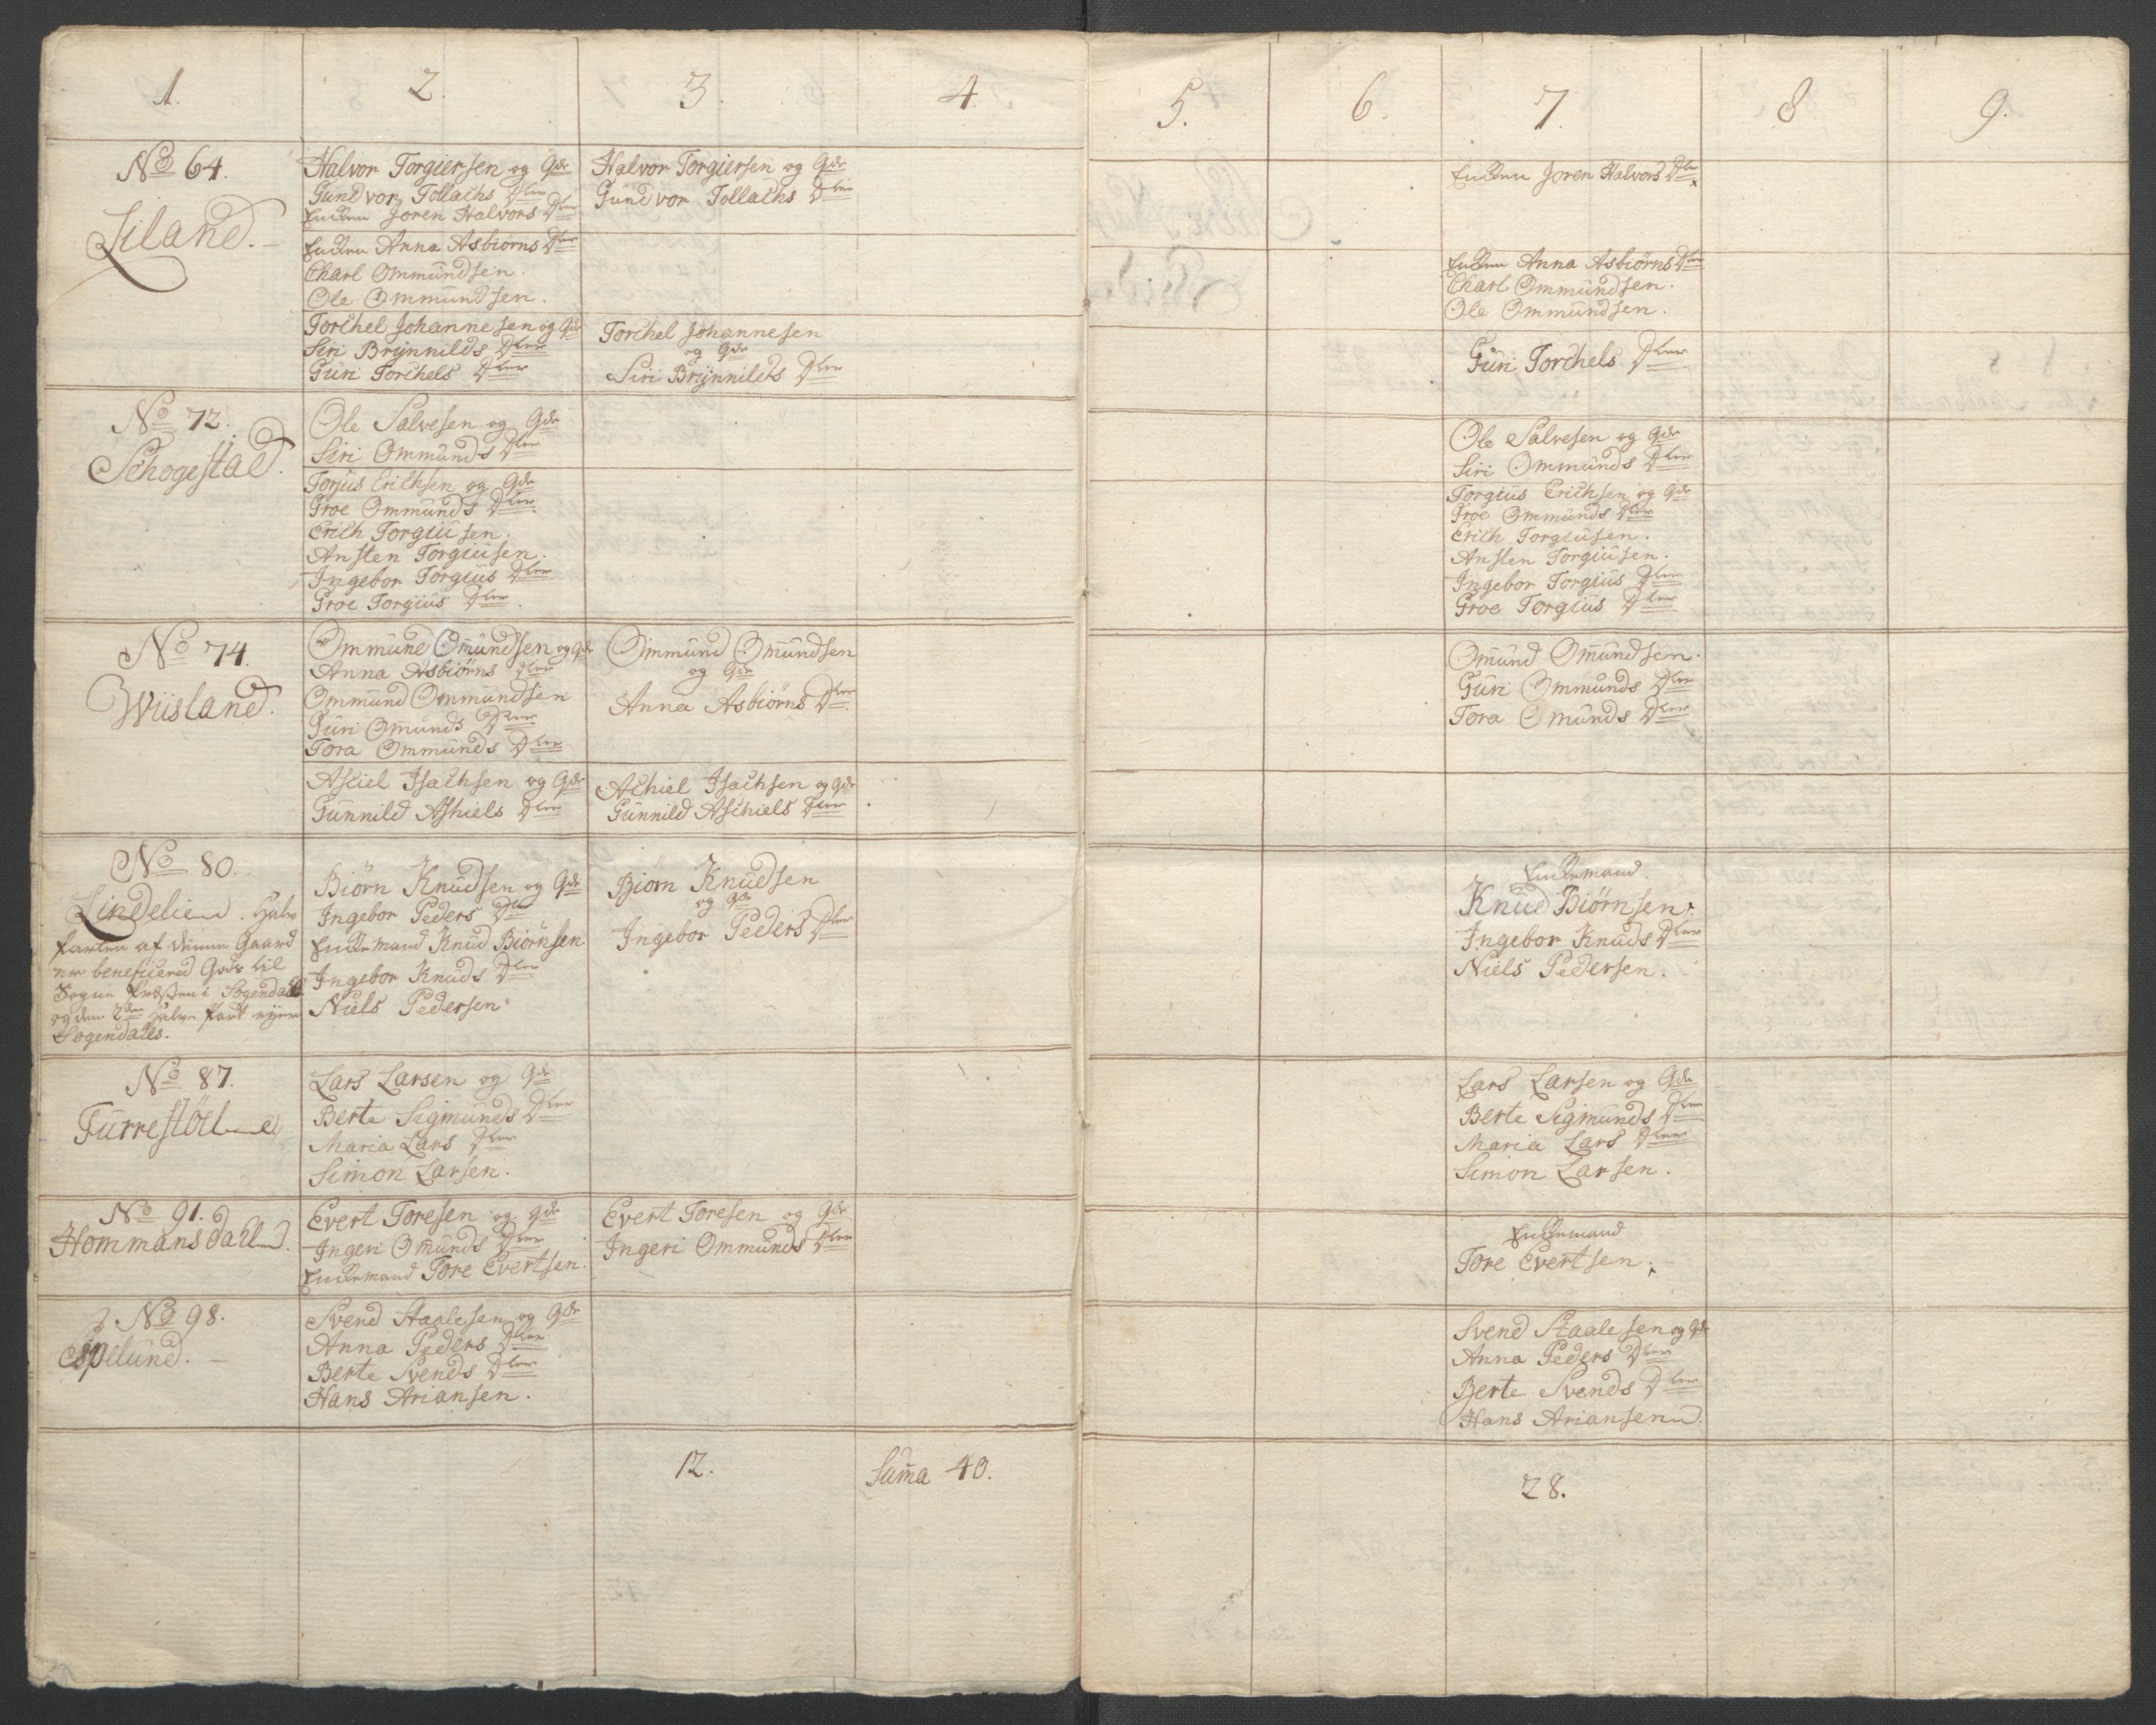 1. 2. 3. 4. 5. 6. 7. 8. 9.
No 64.
Liland.
Halvor Torgiersen og Qde
Gundvor Tollachs Dter
Enken Joren Halvors Dter
Halvor Torgiersen og Qde
Gundvor Tollachs Dter
Enken Joren Halvors Dter
Enken Anna Asbiørns Dter
Charl Ommundsen.
Ole Ommundsen.
Enken Anna Asbiørns Dter
Charl Ommundsen.
Ole Ommundsen.
Torchel Johannesen og Qde
Siri Brynnilds Dter
Guri Torchels Dter
Torchel Johannesen
og Qde
Siri Brynnilds Dter
Guri Torchels Dter
No 72.
Schogestad.
Ole Salvesen og Qde
Siri Ommunds Dter
Ole Salvesen og Qde
Siri Ommunds Dter
Torjus Erichsen og Qde
Groe Ommunds Dter
Erich Torgiusen.
Ansten Torgiusen.
Ingebor Torgius Dter
Groe Torgius Dter.
Torgius Erichsen og Qde
Groe Ommunds Dter
Erich Torgiusen.
Ansten Torgiusen.
Ingebor Torgius Dter
Groe Torgius Dter
No 74.
Wiisland.
Ommund Omundsen og Qde
Anna Asbiørns Dter
Ommund Ommundsen
Guri Omunds Dter
Tora Ommunds Dter
Ommund Omundsen
og Qde
Anna Asbiørns Dter
Omund Omundsen.
Guri Ommunds Dter
Tora Omunds Dter
Asciel Isachsen og Qde
Gunnild Ashiels Dter
Achiel Isachsen og Qde
Gunnild Aschiels Dter
No 80.
Lindelien. Halv
Parten af denne Gaard
er beneficered Gods til
Sogne Præsten i Sogendahl
og den 2den halve Part eyer
Sogendahls.
Biørn Knudsen og Qde
Ingebor Peders Dtr
Enkemand Knud Biørnsen
Ingebor Knuds Dter
Niels Pedersen
Biørn Knudsen
og Qde
Ingebor Peders Dter
Enkemand
Knud Biørnsen.
Ingebor Knuds Dter
Niels Pedersen.
No 87.
Furrestøl
Lars Larsen og Qde
Berte Sigmunds Dter
Maria Lars Dter
Simon Larsen.
Lars Larsen og Qde
Berte Sigmunds Dter
Maria Lars Dter
Simon Larsen.
No 91.
Hommansdahl.
Evert Toresen og Qde
Ingeri Omunds Dter
Enkemand Tore Evertsen.
Evert Toresen og Qde
Ingeri Ommunds Dter
Enkemand
Tore Evertsen.
No 98.
Espelund.
Svend Staalesen og Qde
Anna Peders Dter
Berte Svends Dter
Hans Ariansen.
Svend Staalesen og Qde
Anna Peders Dter
Berte Svends Dter
Hans Ariansen.
12.
Suma 40.
28.